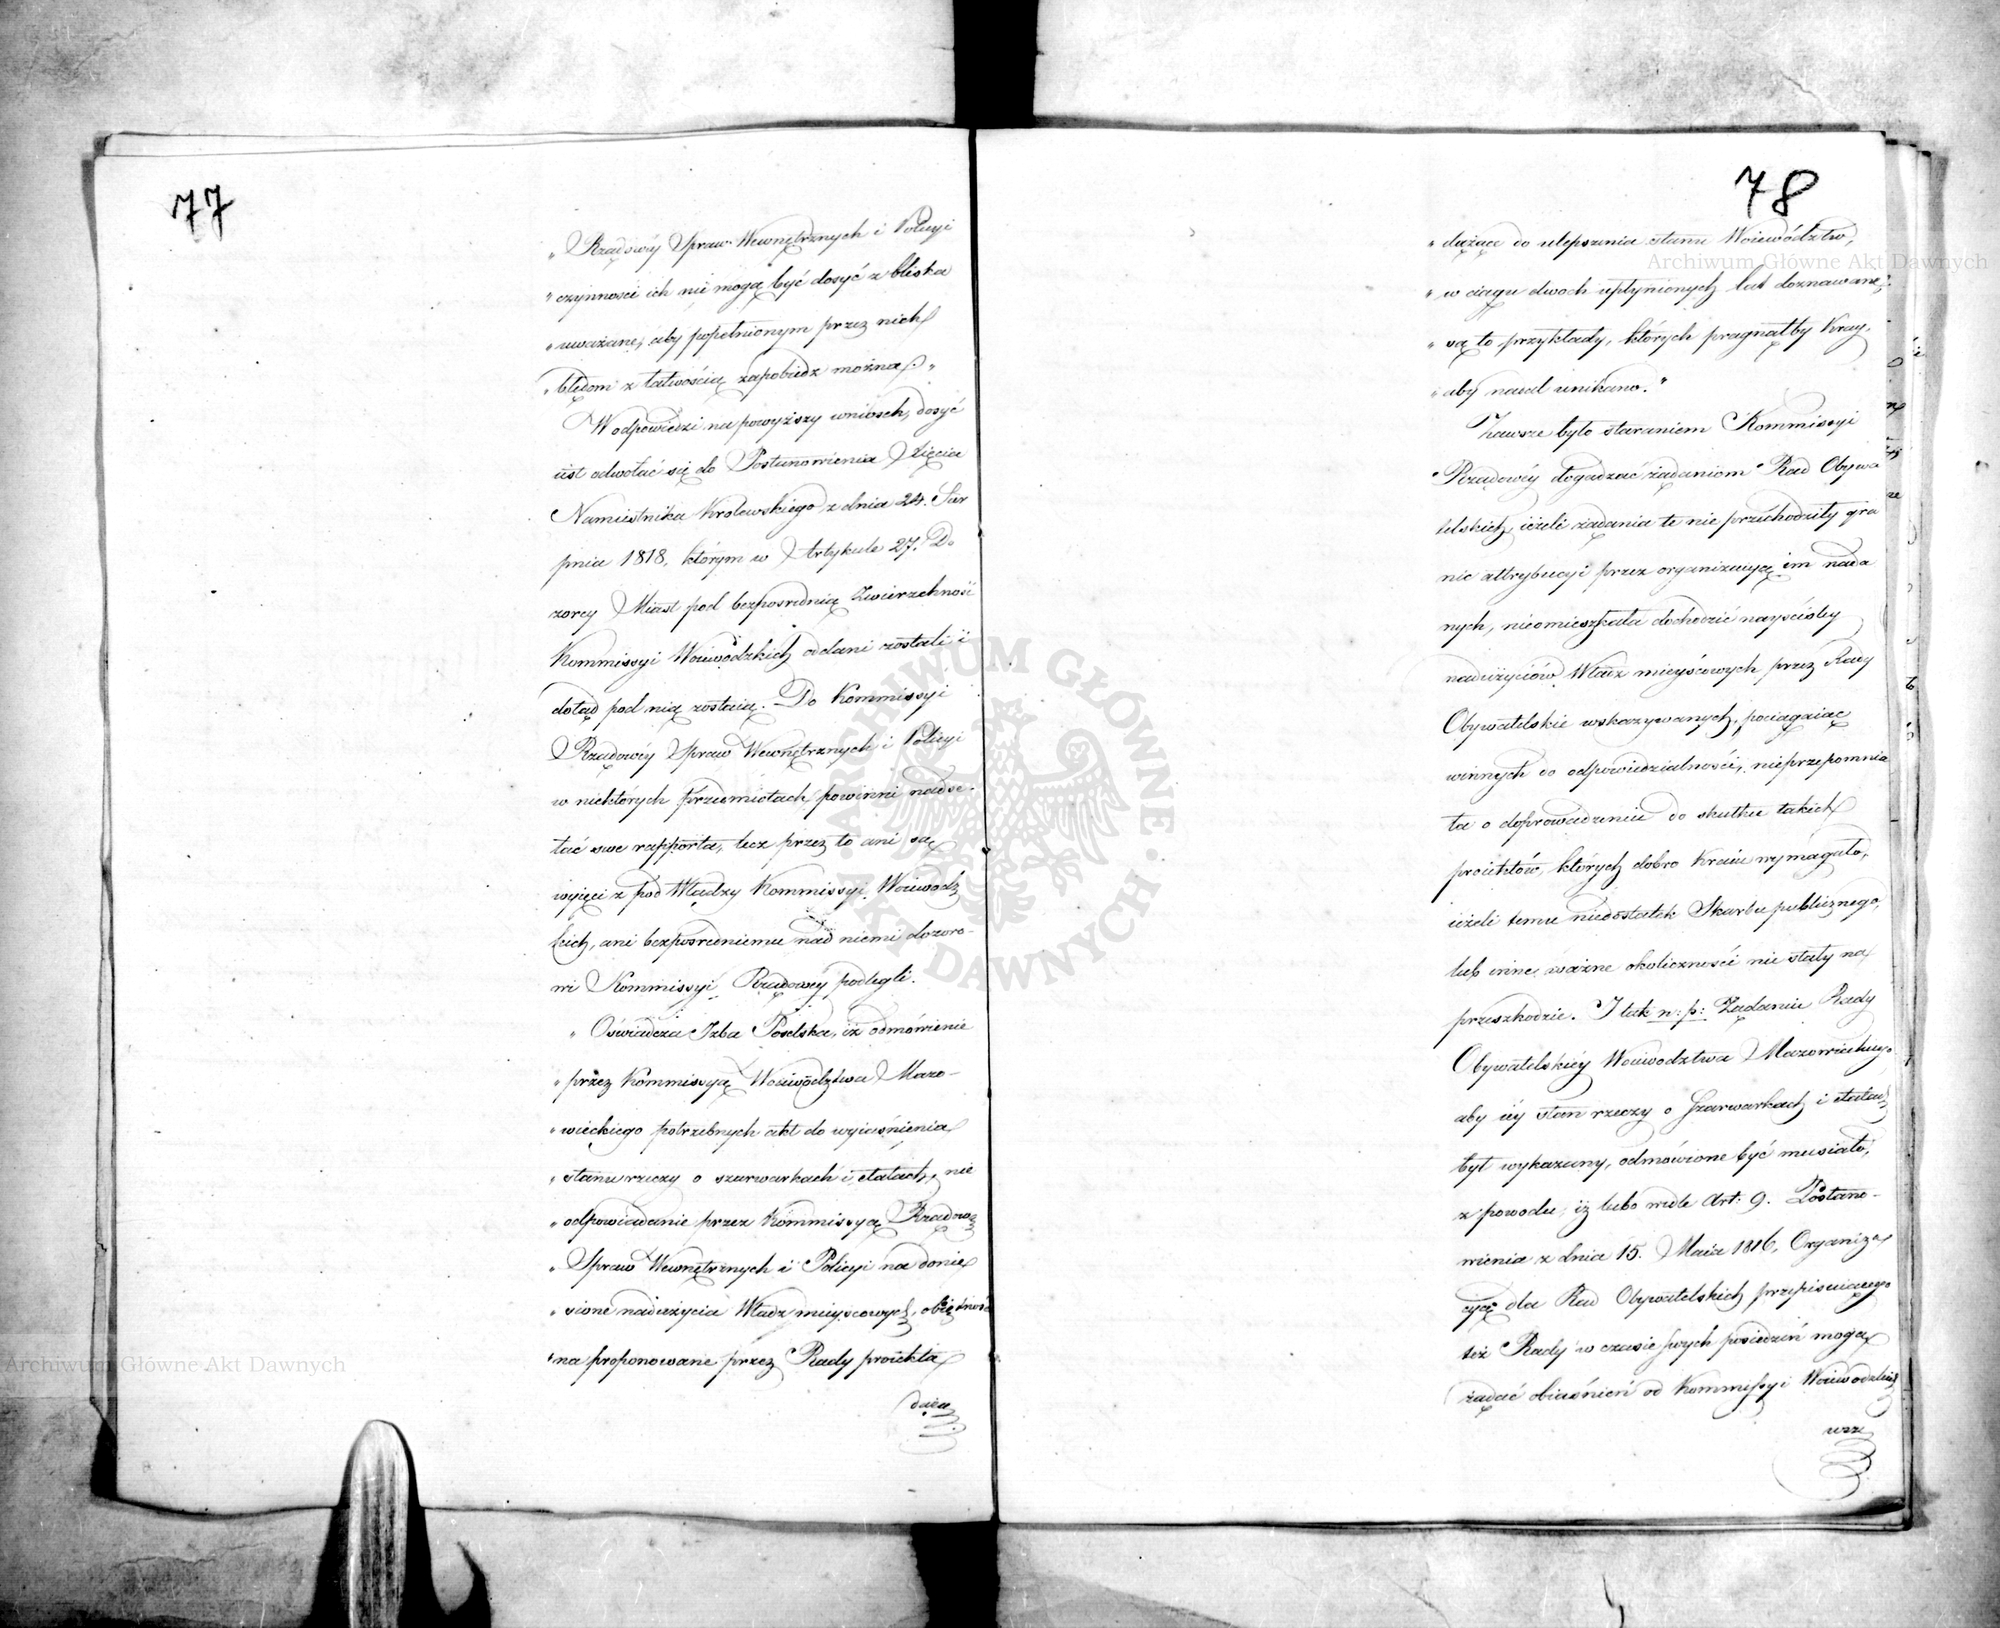 77
„ Rządowéy Spraw Wewnętrznych i Policyi
„ czynności ich nie mogą być dosyć z bliska
„ uważane, aby popełnionym przez nich
„ błędom z łatwością zapobiedz można. „
W odpowiedzi na powyższy wniosek, dosyć
iest odwołać się do Postanowienia Xięcia
Namiestnika Królewskiego z dnia 24. Sier
pnia 1818, którym w Artykule 27. Do
zorcy Miast pod bezpośrednią Zwierzchność
Kommissyi Woiewódzkich oddani zostali i
dotąd pod nią zostaią. Do Kommissyi
Rządowéy Spraw Wewnętrznych i Policyi
w niektórych przedmiotach powinni nadse-
łać swe rapporta, lecz przez to ani są
wyięci z pod Władzy Kommissyi Woiewódz
kich, ani bezpośredniemu nad niemi dozoro-
wi Kommissyi Rządowéy podlegli.
„ Oświadcza Izba Poselska, iż odmówienie
„ przez Kommissyą Woiewództwa Mazo-
„ wieckiego potrzebnych akt do wyiaśnienia
„ stanu rzeczy o szarwarkach i etatach, nie
„ odpowiadanie przez Kommissyą Rządową
„ Spraw Wewnętrznych i Policyi na donie
„ sione nadużycia Władz mieyscowych, obiętność
„ na proponowane przez Rady proiekta
dążą
78
„ dążące do ulepszenia stanu Woiewództw,
„ w ciągu dwoch upłynionych lat doznawane,
„ są to przykłady, których pragnąłby Kray,
„ aby nadal unikano.”
Zawsze było staraniem Kommissyi
Rządowéy dogadzać żądaniom Rad Obywa
telskich, ieżeli żądania te nie przechodziły gra
nic attrybucyi przez organizacyą im nada
nych, nieomieszkała dochodzić nayściśley
nadużyciów Władz mieyscowych przez Rady
Obywatelskie wskazywanych, pociągaiąc
winnych do odpowiedzialności, nieprzepomnia
ła o doprowadzeniu do skutku takich
proiektów, których dobro Kraiu wymagało,
ieżeli temu niedostatek Skarbu publicznego,
lub inne ważne okoliczności nie stały na
przeszkodzie. I tak n: p: Żądaniu Rady
Obywatelskiéy Woiewodztwa Mazowieckiego
aby iéy stan rzeczy o Szarwarkach i etatach
był wykazany, odmówione być musiało,
z powodu, iż lubo wedle Art: 9. Postano-
wienia z dnia 15. Maia 1816, Organiza
cyą dla Rad Obywatelskich przepisuiącego
też Rady w czasie swych posiedzeń mogą
żądać obiaśnień od Kommissyi Woiewodzkich
wsz
Archiwum Główne Akt Dawnych
Archiwum Główne Akt Dawnych
ARCHIWUM GŁÓWNE · AKT DAWNYCH ·